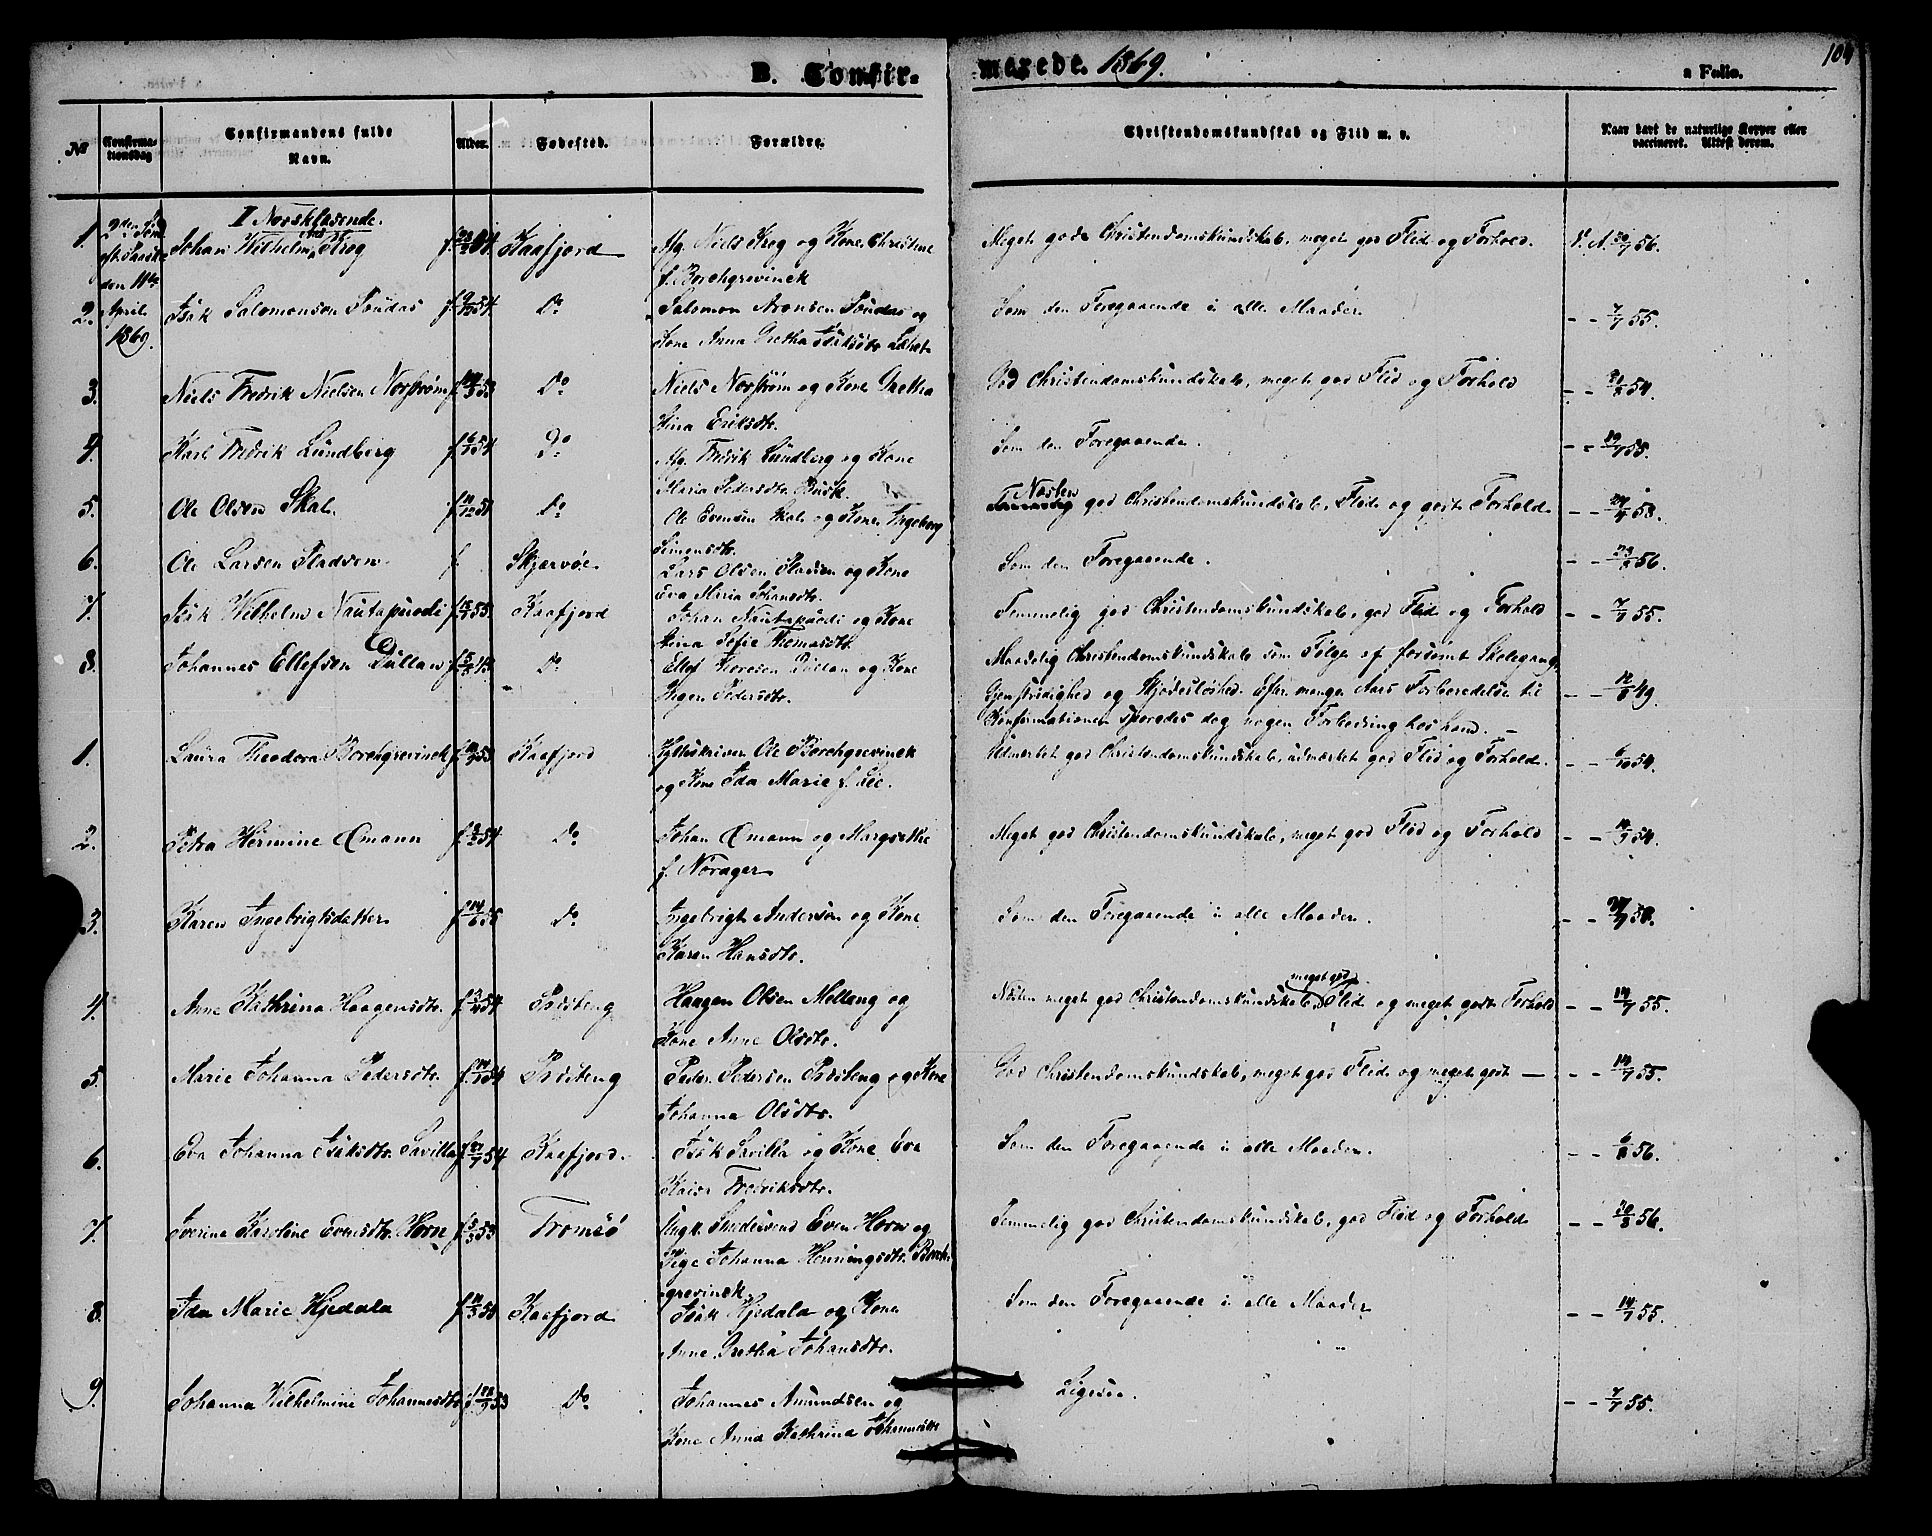 B. Confir-
merede. 1869.
a Folio.
104
No
Confirma-
tionsdag
Confirmandens fulde
Navn.
Alder.
Fødested.
Forældre.
Christendomskundskab og Flid m. v.
Naar havt de naturlige Kopper eller
vaccineret. Attest derom.
I Norsklæsende.
1. 2den Sønd. eft. Paaske den 11te April 1869. Johan Wilhelm Krog Kaafjord Niels Krog og Kone Christine
f. Borchgrevinck
Meget gode Christendomskundskab, meget god Flid og Forhold. V. A. 56.
2. Isak Salomonsen Do Salomon Aronsen og
Kone Anna Gretha Isaksdtr.
Som den Foregaaende i alle Maader. - - 7/7 55.
3. Niels Fredrik Nielsen Norstrøm Do Niels Norstrøm og Kone Gretha
Stina Eriksdtr.
God Christendomskundskab, meget god Flid og Forhold - - 54.
4. Karl Fredrik Lundberg Do Fredrik Lundberg og Kone
Maria Pedersdtr. Busk.
Som den Foregaaende. - - 55.
5. Ole Olsen Skal. Do Ole Evensen Skal og Kone Ingeborg
Simensdtr.
Næsten god Christendomskundskab, Flid og godt Forhold - - 53.
6. Ole Larsen Stadsen f. Skjervøe Lars Olsen Stadsen og Kone
Eva Maria Johansdtr.
Som den Foregaaende. - - 56.
7. Isak Wilhelm Nautapuodi Kaafjord Johan Nautapuodi og Kone
Stina Sofie Thomasdtr.
Temmelig god Christendomskundskab, god Flid og Forhold - - 55.
8. Johannes Ellefsen Dullan Do Ellef Dullan og Kone
Ingen Pedersdtr.
Maadelig Christendomskundskab som Følge af forsømt Skolegang,
Gjenstridighed og Skjødesløshed. Efter mange Aars Forberedelse til
Konfirmationen sporedes dog nogen Forbedring hos ham. - - - 49.
1. Laura Theodora Borchgrevinck Kaafjord Ole Borchgrevinck
og Kone Ida Marie f. Lie.
Udmærket god Christendomskundskab, udmærket god Flid og Forhold. - - 6/10 54.
2. Petra Hermine Emann Do Johan Emann og Margrethe
f. Norager
Meget god Christendomskundskab, meget god Flid og Forhold - - 54.
3. Karen Ingebrigtsdatter Do Ingebrigt Anderson og Kone
Karen Hansdtr.
Som den Foregaaende i alle Maader. - -
4. Anne Kathrina Haagensdtr. Haagen Olsen Mellang og
Kone Anne Olsdtr.
Næsten meget god Christendomskundskab, meget god Flid og meget godt Forhold - - 14/7 55.
5. Marie Johanna Pedersdtr. Peder Pedersen og Kone
Johanna Olsdtr.
God Christendomskundskab, meget god Flid og meget godt — - - 14/7 55.
6. Eva Johanna Isaksdtr. Savilla Kaafjord. Isak Savilla og Kone Eva
Kaisa Fredriksdtr.
Som den Foregaaende i alle Maader. - - 6/8 56.
7. Iverine Karoline Evensdtr. Horn Tromsø Ungk. Snedkersvend Even Horn og
Pige Johanna Henningsdtr. Borch-
grevinck
Temmelig god Christendomskundskab, god Flid og Forhold - - 56.
8. Ida Marie Hjedala Kaafjord Isak Hjedala og Kone
Anne Gretha Johansdtr.
Som den Foregaaende i alle Maader - - 14/7 55.
9. Johanna Wilhelmine Johannesdtr. Do Johannes Amundsen og
Kone Anna Kathrina Johannesdtr.
Ligesaa. - - 7/7 55.